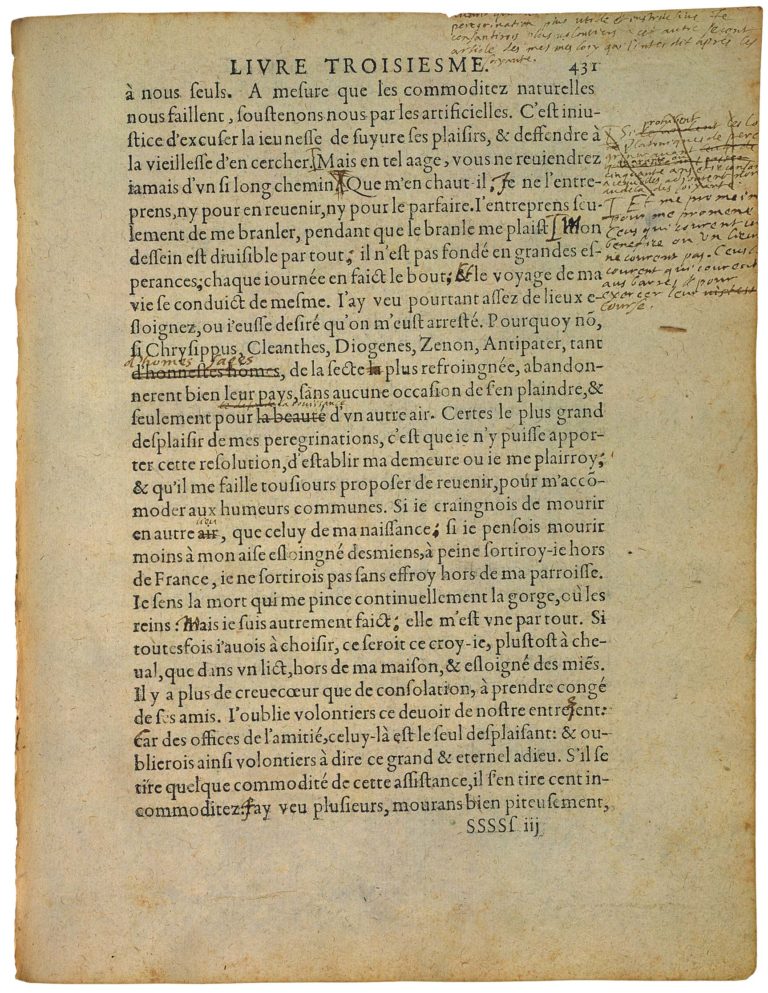 peregrination plus utile et
article des mesmes loix qui l'interdit apres les
soyxante.
LIVRE TROISIESME. 431
à nous seuls. A mesure que les commoditez naturelles
nous faillent, soustenons nous par les artificielles. C'est iniu-
stice d'excuser la ieunesse de suyure ses plaisirs, & deffendre à
la vieillesse d'en cercher. Mais en tel aage, vous ne reuiendrez
iamais d'vn si long chemin. Que m'en chaut-il. Je ne l'entre-
prens, ny pour en reuenir, ny pour le parfaire. I'entreprens seu-
lement de me branler, pendant que le branle me plaist. Mon
dessein est diuisible par tout: il n'est pas fondé en grandes es-
perances: chaque iournée en faict le bout: Et le voyage de ma
vie se conduict de mesme. I'ay veu pourtant assez de lieux e-
sloignez, ou i'eusse desiré qu'on m'eust arresté. Pourquoy nō,
si Chrysippus, Cleanthes, Diogenes, Zenon, Antipater, tant
d'homes sages
d'honnestes homes, de la secte plus refroingnée, abandon-
nerent bien leur pays, sans aucune occasion de s'en plaindre, &
seulement pour la beauté d'vn autre air. Certes le plus grand
desplaisir de mes peregrinations, c'est que ie n'y puisse appor-
ter cette resolution, d'establir ma demeure ou ie me plairroy;
& qu'il me faille tousiours proposer de reuenir, pour m'accō-
moder aux humeurs communes. Si ie craingnois de mourir
lieu
en autre air, que celuy de ma naissance: si ie pensois mourir
moins à mon aise esloingné des miens, à peine sortiroy-ie hors
de France, ie ne sortirois pas sans effroy hors de ma parroisse.
Ie sens la mort qui me pince continuellement la gorge, ou les
reins: Mais ie suis autrement faict: elle m'est vne par tout. Si
toutesfois i'auois à choisir, ce seroit ce croy-ie, plustost à che-
ual, que dans vn lict, hors de ma maison, & esloigné des miēs.
Il y a plus de creuecœur que de consolation, à prendre congé
de ses amis. I'oublie volontiers ce deuoir de nostre entregent:
Car des offices de l'amitié, celuy-là est le seul desplaisant: & ou-
blierois ainsi volontiers à dire ce grand & eternel adieu. S'il se
tire quelque commodité de cette assistance, il s'en tire cent in-
commoditez. J'ay veu plusieurs, mourans bien piteusement,
SSSSs iij
Et me promeine
pour me promener
Ceus qui courent un
benefice ou un lieure
ne courent pas. Ceus la
courent qui courent
aus barres et pour
exercer leur
course.